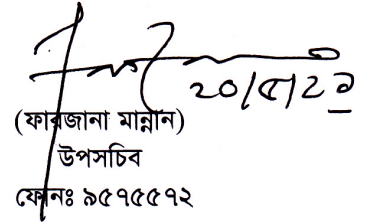 ২০/৫/২১
(ফারজানা মান্নান)
উপসচিব
ফোনঃ ৯৫৭৫৫৭২